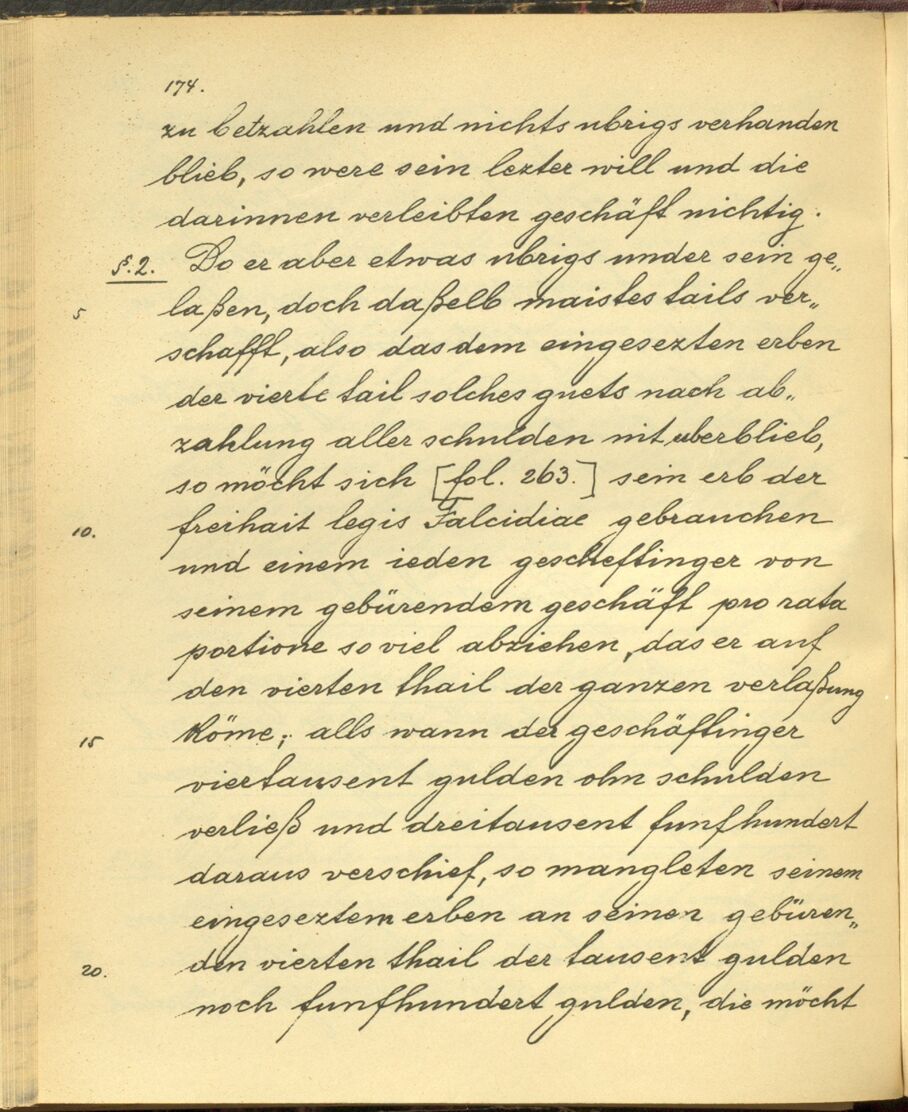 174.
zu betzahlen und nichts ubrigs verhanden
blieb, so were sein lezter will und die
darinnen verleibten geschäft nichtig.
§. 2. Do er aber etwas ubrigs under sein ge„
5 laßen, doch daßelb maistes tails ver„
schafft, also das dem eingesezten erben
der vierte tail solches guets nach ab„
zahlung aller schulden nit uberblieb,
so möcht sich [fol. 263.] sein erb der
10. freihait legis Falcidiae gebrauchen
und einem ieden gescheftinger von
seinem gebürendem geschäft pro rata
portione so viel abziehen, das er auf
den vierten thail der ganzen verlaßung
15 köme; alls wann der geschäftinger
viertausent gulden ohn schulden
verließ und dreitausent funfhundert
daraus verschief, so mangleten seinem
eingeseztem erben an seinen gebüren„
20. den vierten thail der tausent gulden
noch funfhundert gulden, die möcht